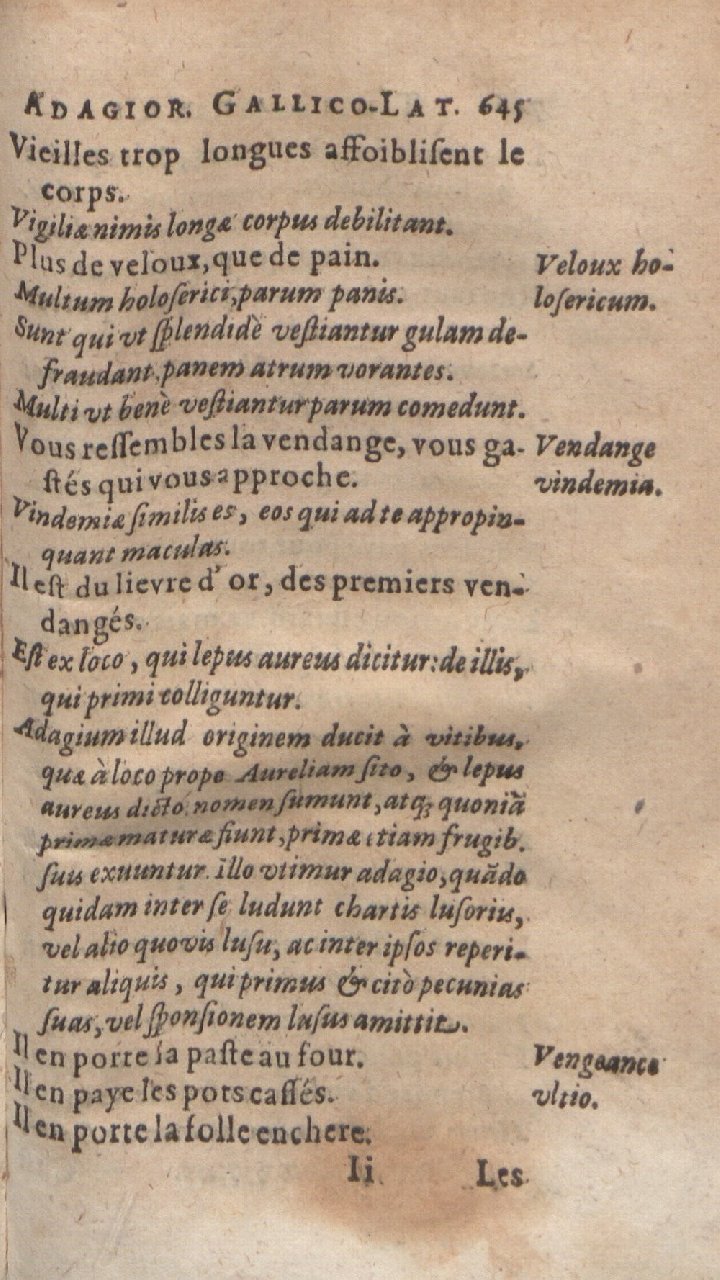 ADAGIOR. GALLICO-LAT. 645
Vieilles trop longues affoibliſent le
corps.
Vigiliæ nimis longæ corpus debilitant.
Plus de veloux, que de pain.
Veloux ho-
Multum holoſerici, parum panis.
loſericum.
Sunt qui vt ſplendidè veſtiantur gulam de-
fraudant, panem atrum vorantes.
Multi vt benè veſtiantur parum comedunt.
Vous reſſembles la vendange, vous ga-
Vendange
ſtés qui vous approche.
vindemia.
Vindemiæ ſimilis es, eos qui ad te appropin-
quant maculas.
Il eſt du lievre d'or, des premiers ven-
dangés.
Eſt ex loco, qui lepus aureus dicitur: de illis,
qui primi colliguntur.
Adagium illud originem ducit à vitibus,
quæ à loco prope Aureliam ſito, & lepus
aureus dicto nomen ſumunt, atq; quoniā
primæ maturæ fiunt, primæ etiam frugib.
ſuis exuuntur. illo vtimur adagio, quādo
quidam inter ſe ludunt chartis luſoriis,
vel alio quovis luſu, ac inter ipſos reperi-
tur aliquis, qui primus & citò pecunias
ſuas, vel ſponſionem luſus amittit.
Il en porte la paſte au four.
Vengeance
Il en paye les pots caſſés.
vltio.
Il en porte la folle enchere.
Ii
Les